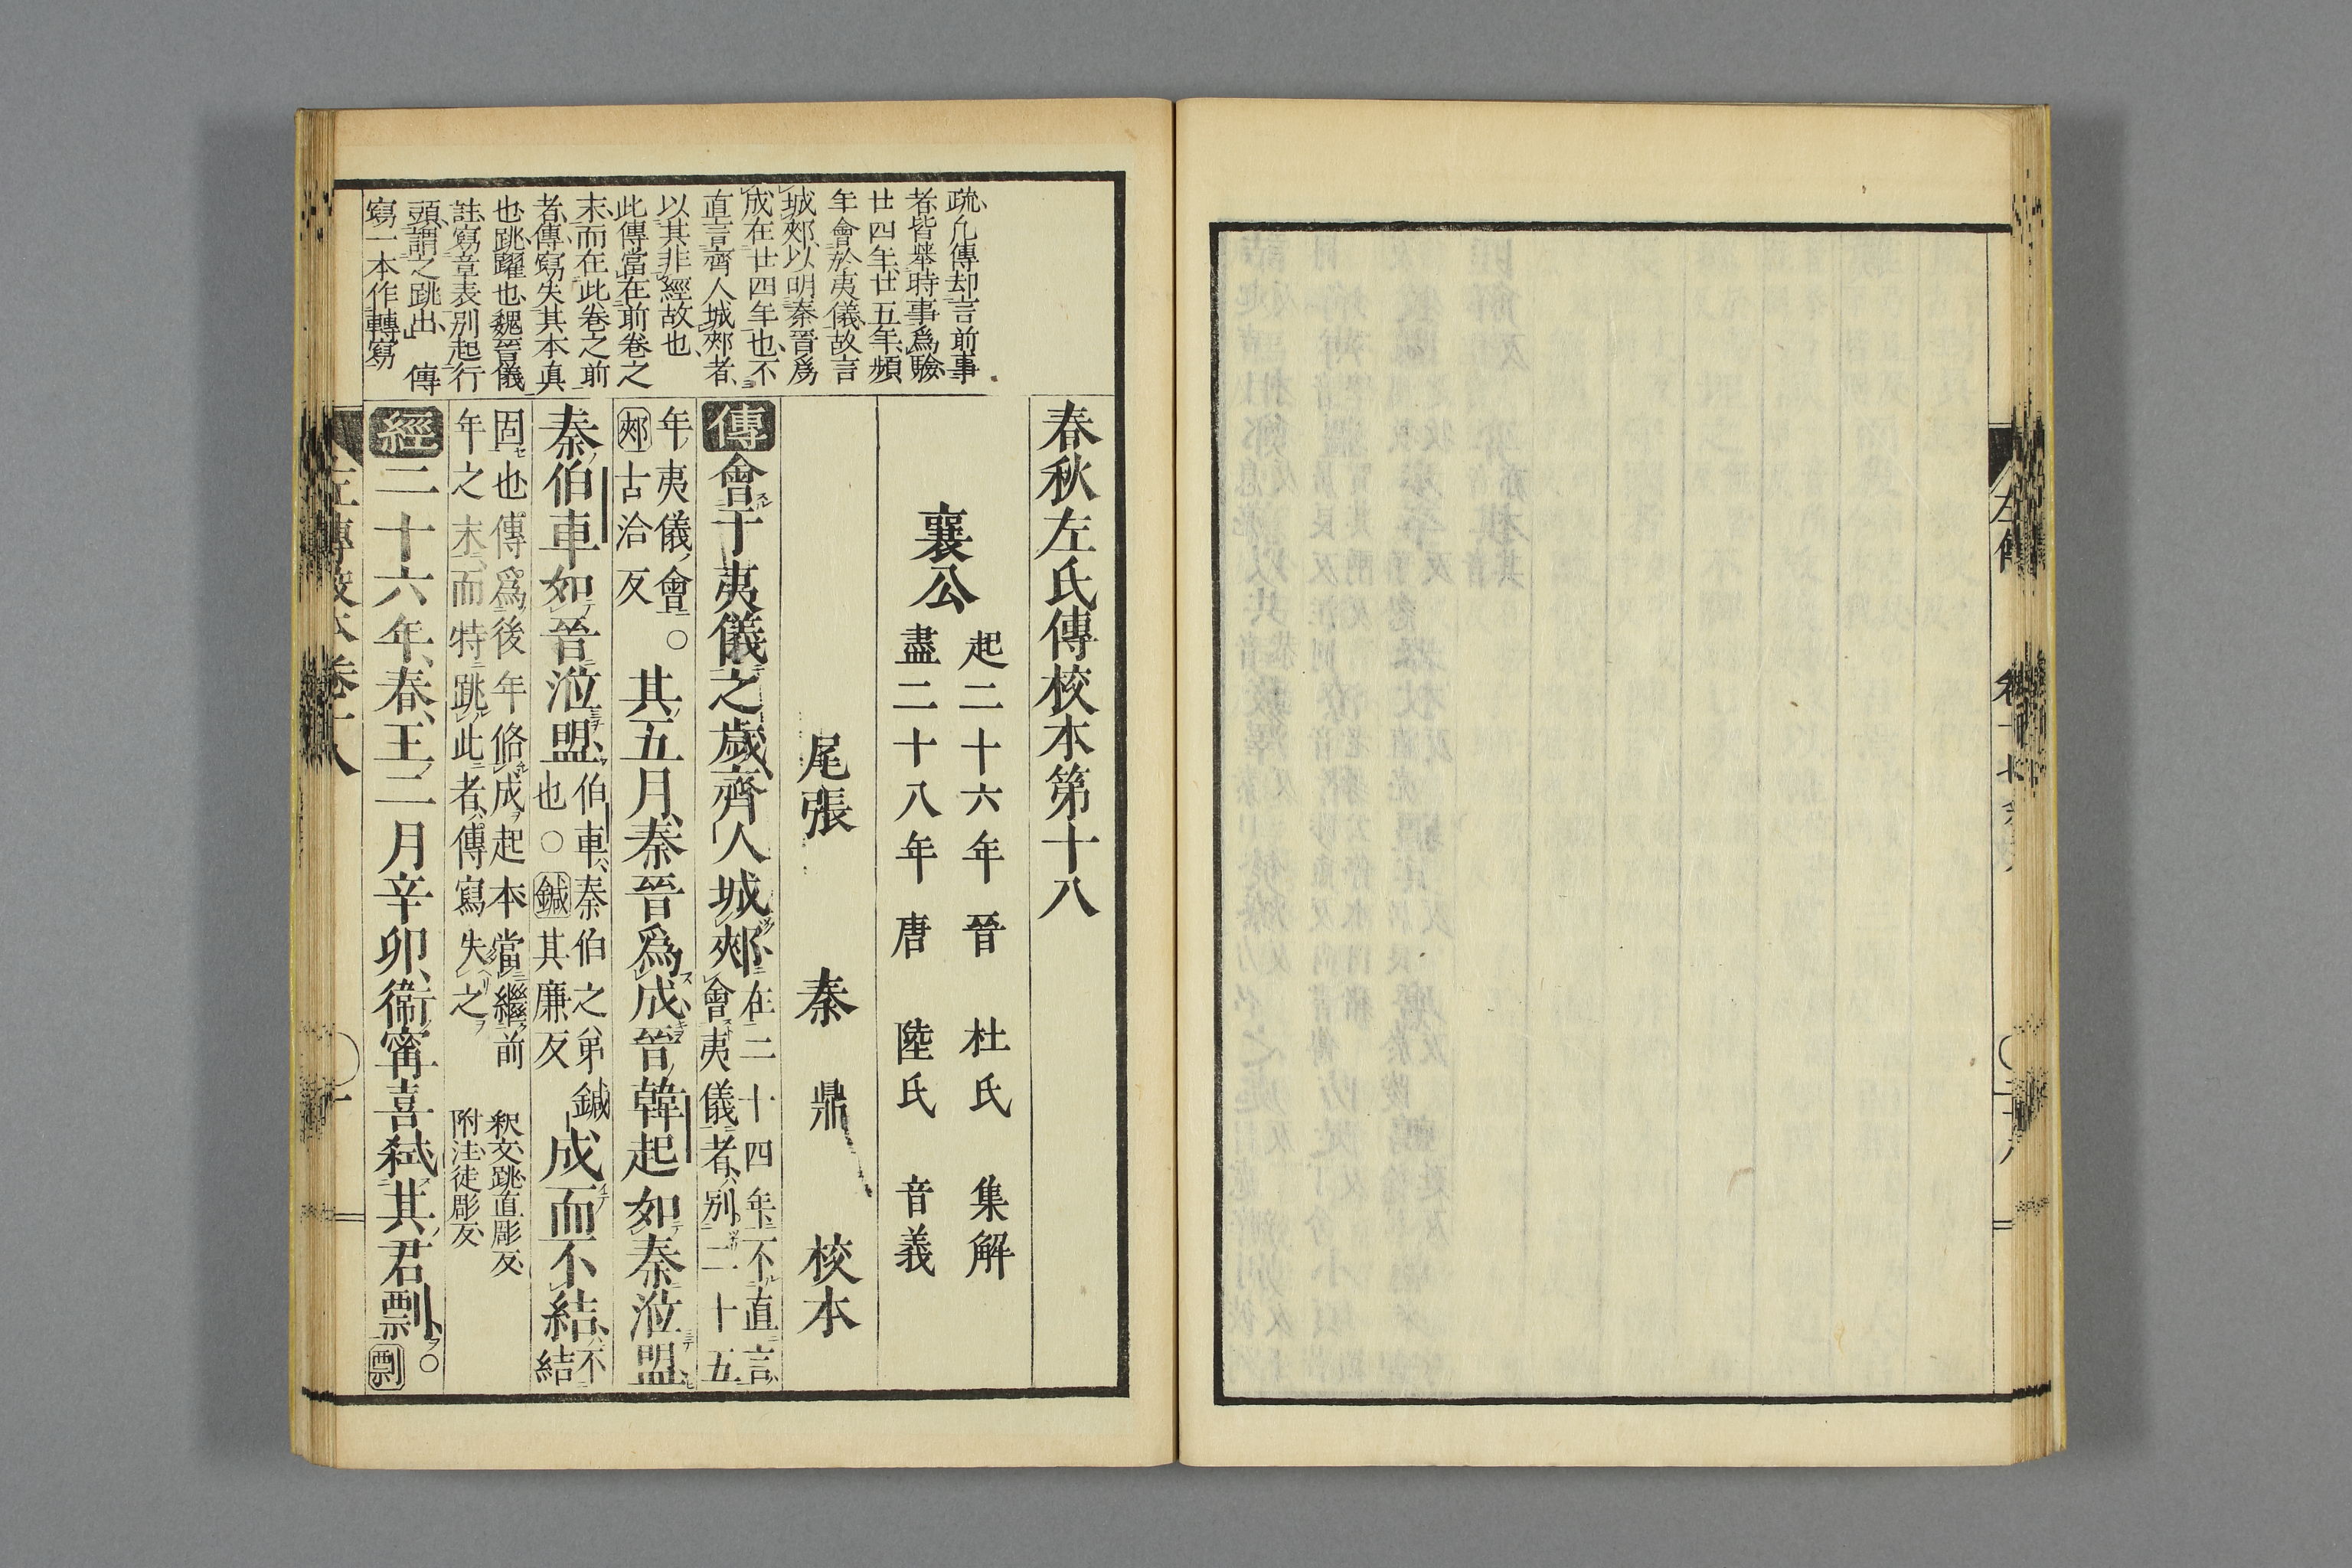 春秋左氏傳校本第十八
襄公
起二十六年
盡二十八年
晉 杜氏 集解
唐 陸氏 音義
尾張 秦 鼎 校本
傳會于夷儀之歲齊人城郟
在二十四年不直言
會夷儀者別二十五
年夷儀會○
郟古洽反
其五月秦晉爲成晉韓起如秦涖盟
秦伯車如晉涖盟
伯車秦伯之弟鍼
也○鍼其廉反
成而不結
不結
固也傳爲後年脩成起本當繼前
年之末而特跳此者傳寫失之
釈文跳直彫反
附注徒彫反
經二十六年春王二月辛卯衛甯喜弒其君剽○剽
疏凡傳却言前事
者皆舉時事爲驗
廿四年廿五年頻
年會於夷儀故言
城郟以明秦晉爲
成在廿四年也不
直言齊人城郟者
以其非經故也
此傳當在前卷之
末而在此卷之前
者傳寫失其本真
也跳躍也魏晉儀
註寫章表別起行
頭謂之跳出 傳
寫一本作轉寫
左傳校本 卷十八